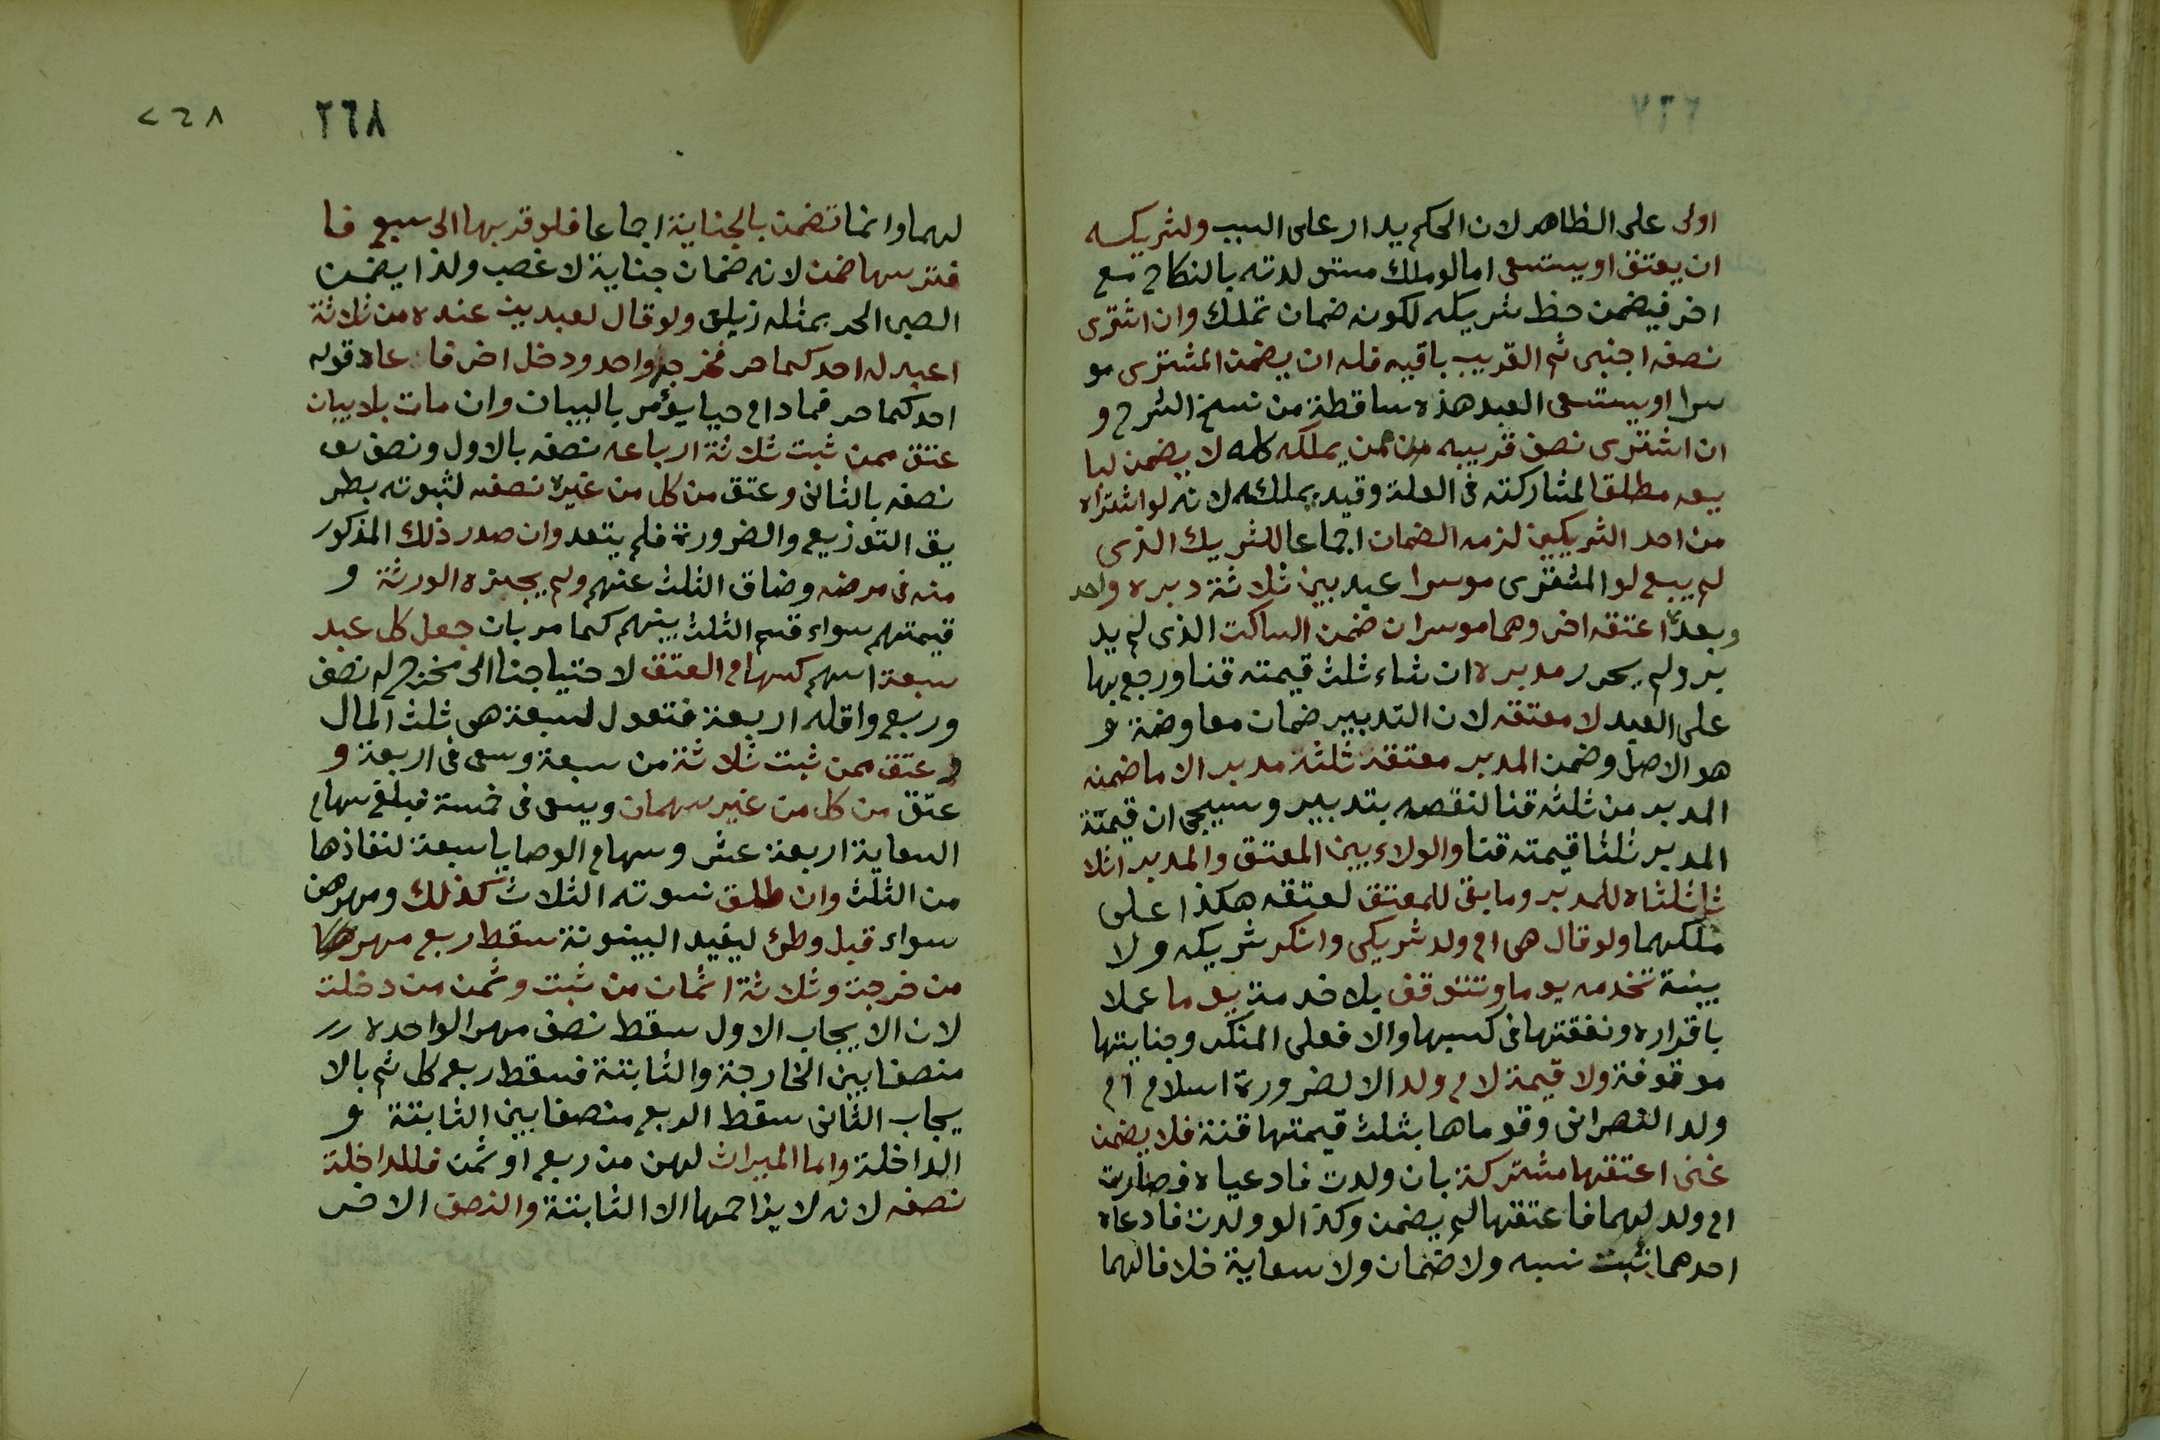 ٢٦٧
اولى على الظاهر لان الحكم يدار على السبب ولشريكسه
ان يعتق او يستسعى اما لو ملك مستولدته بالنكاح مع
اخر فيضمن حظ شريكه لكونه ضمان تملك وان اشترى
نصفه اجنبى ثم القريب باقيه فله ان يضمن المشترى مو
سرا او يستسعى العبد هذه ساقطة من نسخ الشرح و
ان اشترى نصف قريبه ممن يملكه كله لا يضمن لبا
يعه مطلقا لمشاركته فى العلة وقيد بملكه لانه لو اشتراه
من احد الشريكين لزمه الضمان اجماعا للشريك الذى
لم يبع لو المشترى موسرا عبد بين ثلاثة دبره واحد
وبعده اعتقه اخر وهما موسران ضمن الساكت الذى لم يد
بر ولم يحرر مدبره ان شاء ثلث قيمته قنا ورجع بها
على العبد لا معتقه لان التدبير ضمان معاوضة و
هو الاصل وضمن المدبر معتقه ثلثه مدبر الا ما ضمنه
المدبر من ثلثه قنا لنقصه بتدبير وسيجى ان قيمة
المدبر ثلثا قيمته قنا والولاء بين المعتق والمدبر اثلا
ثا ثلثاه للمدبر وما بقى للمعتق لعتقه هكذا على
ملكهما ولو قال هى ام ولد شريكى وانكر شريكه ولا
بينة تخدمه يوما وتتوقف بلا خدمة يوما عملا
باقراره ونفقتها فى كسبها والا فعلى المنكر وجنايتها
موقوفة ولا قيمة لام ولد الا لضرورة اسلام ام
ولد النصرانى وقوماها بثلث قيمتها قنة فلا يضمن
غنى اعتقها مشتركة بان ولدت فادعياه فصارت
ام ولد لهما فاعتقها لم يضمن وكذا لو ولدت فادعاه
احدهما ثبت نسبه ولا ضمان ولا سعاية خلافا لهما
٢٦٨
٢٦٨
لهما وانما تضمن بالجناية اجماعا فلو قربها الى سبع فا
فترسها ضمن لانه ضمان جناية لا غصب ولذا يضمن
الصبى الحر بمثله زيلعى ولو قال لعبدين عنده من ثلاثة
اعبد له احدكما حر فخرج واحد ودخل اخر فاعاد قوله
احدكما حر فمادام حيا يؤمر بالبيان وان مات بلا بيان
عتق ممن ثبت ثلاثة ارباعه نصفه بالاول ونصف
نصفه بالثانى وعتق من كل من غيره نصفه لثبوته بطر
يق التوزيع والضرورة فلم يتعد وان صدر ذلك المذكور
منه فى مرضه وضاق الثلث عنهم ولم يجيزه الورثة و
قيمتهم سواء قسم الثلث بينهم كما مر بان جعل كل عبد
سبعة اسهم كسهام العتق لاحتياجنا الى مخرج له نصف
وربع واقله اربعة فتعول لسبعة هى ثلث المال
و عتق ممن ثبت ثلاثة من سبعة وسعى فى اربعة و
عتق من كل من غير سهمان ويسعى فى خمسة فبلغ سهام
السعاية اربعة عشر وسهام الوصايا سبعة لنفاذها
من الثلث وان طلق نسوته الثلاث كذلك ومهرهن
سواء قبل وطئ ليفيد البينونة سقط ربع مهر
من خرجت وثلاثة اثمان من ثبت وثمن من دخلت
لان الايجاب الاول سقط نصف مهر الواحدة
منصفا بين الخارجة والثابتة فسقط ربع كل ثم بالا
يجاب الثانى سقط الربع منصفا بين الثابتة و
الداخلة واما الميراث لهن من ربع او ثمن فللداخلة
نصفه لانه لا يزاحمها الا الثابتة والنصف الاخر